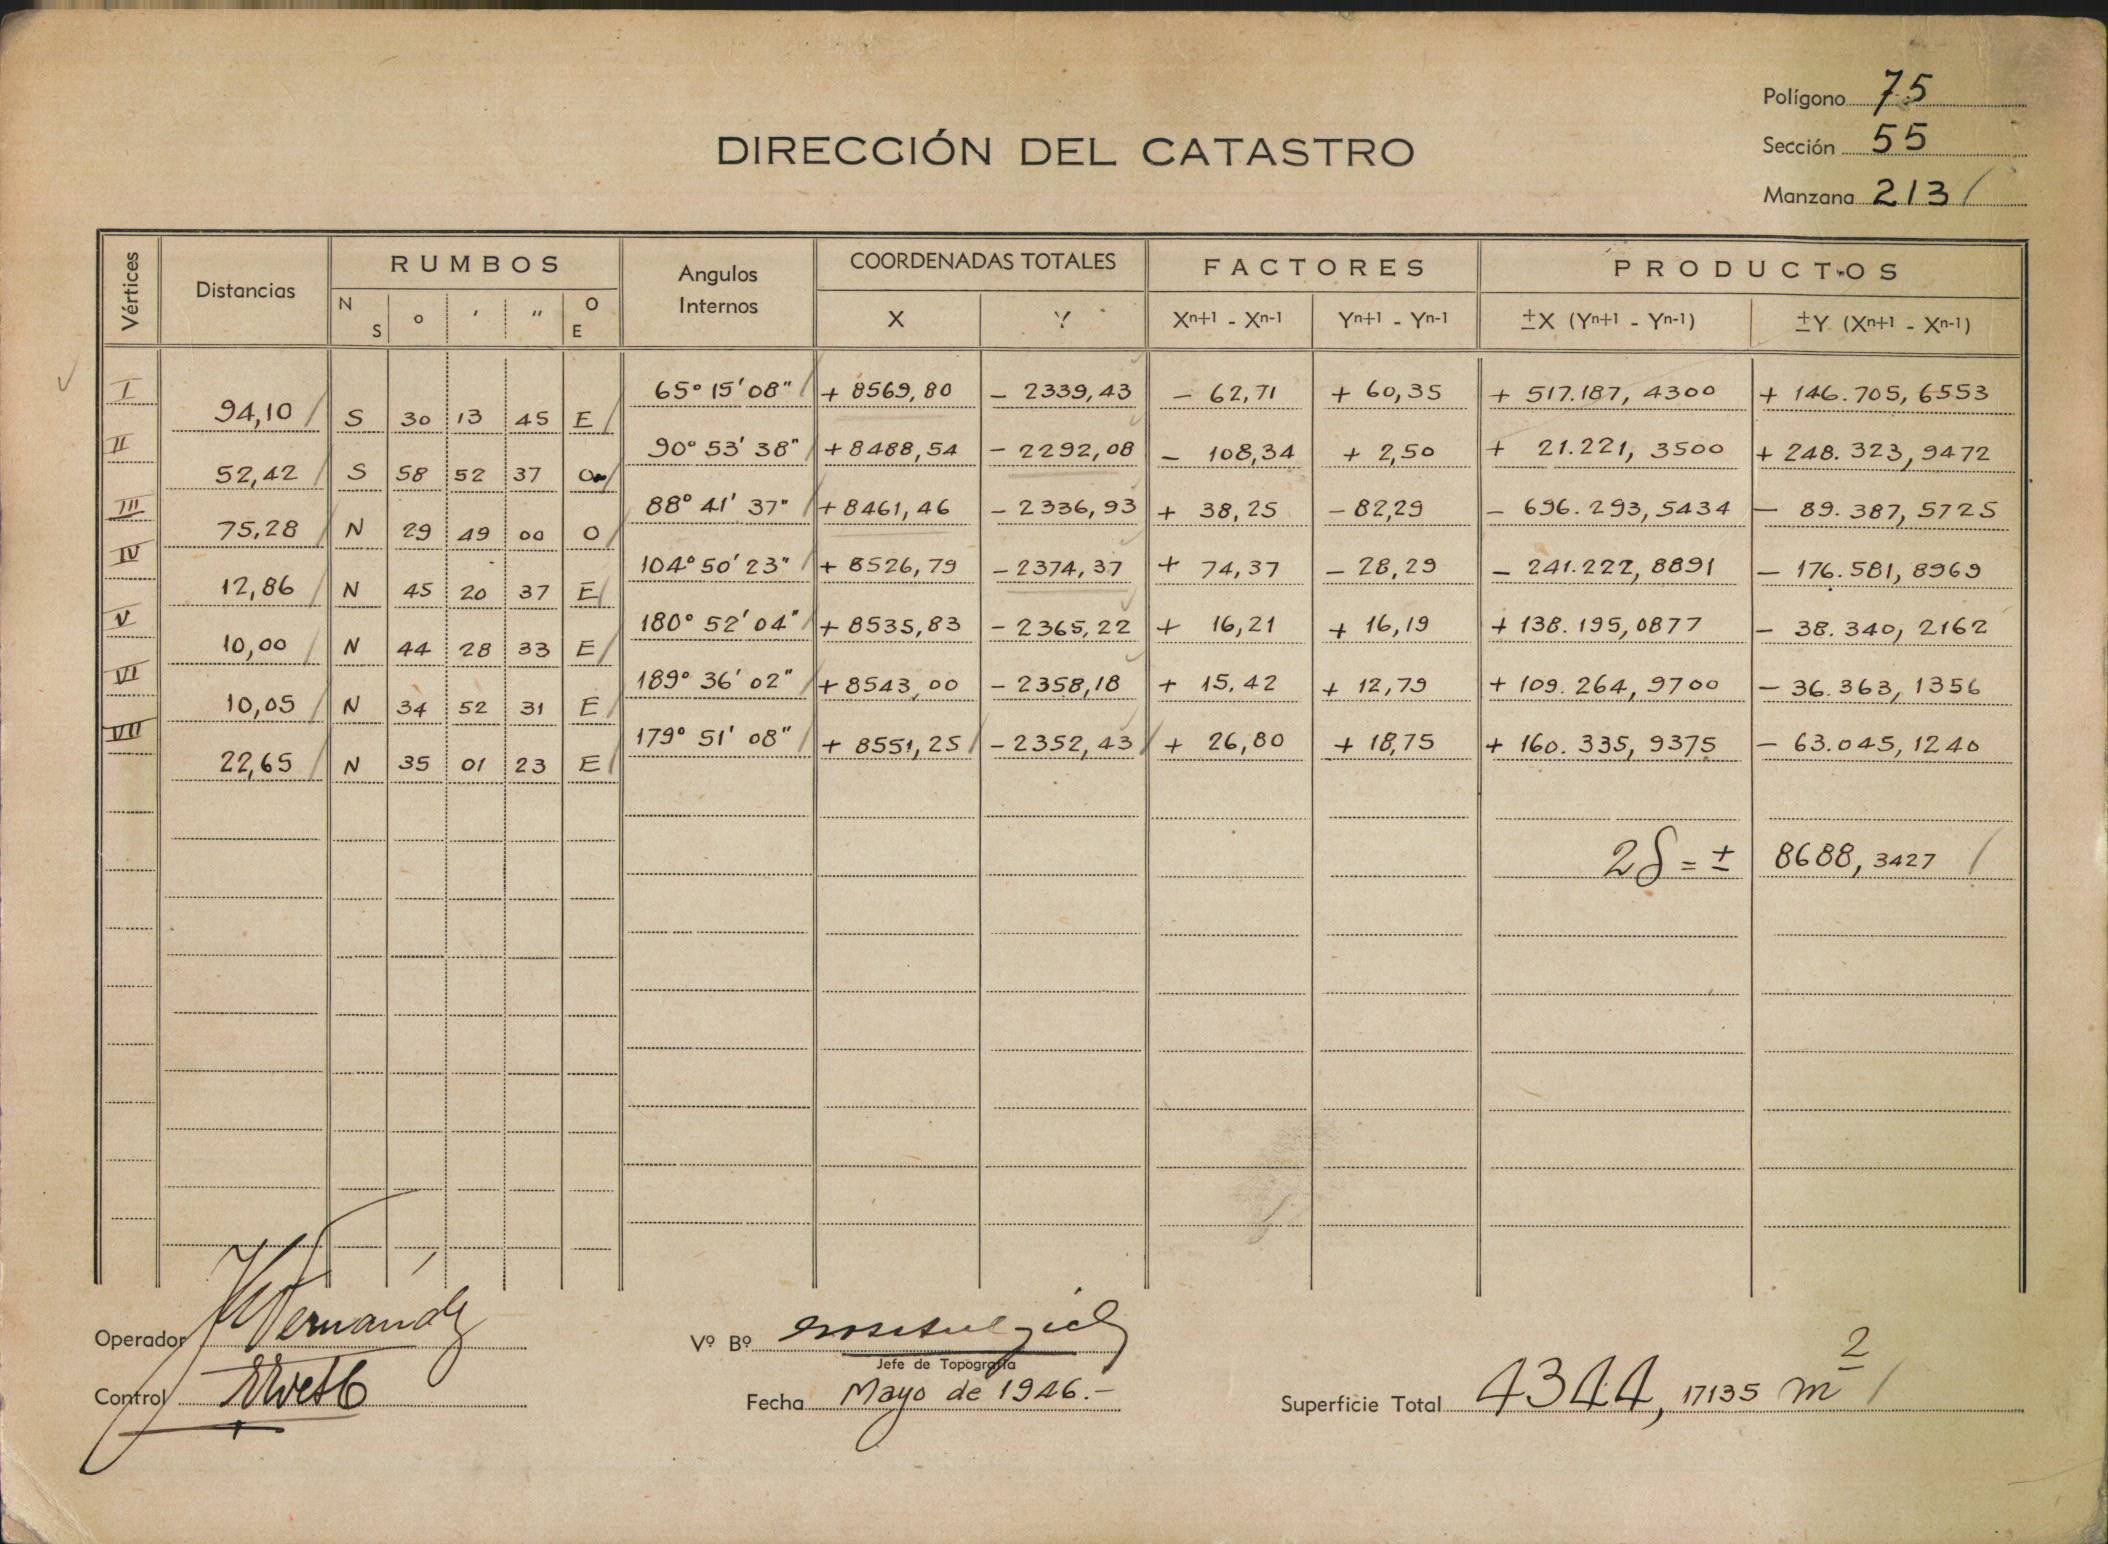 Polígono 75
DIRECCIÓN DEL CATASTRO
Sección 55
Manzana 213
Vértices Distancias RUMBOS Angulos Internos COORDENADAS TOTALES FACTORES PRODUCTOS
N S o ' " O E X Y Xn+1 - Xn-1 Yn+1 - Yn-1 ±X (Yn+1 - Yn-1) ±Y (Xn+1 - Xn-1)
I 65° 15' 08" + 8569,80 - 2339,43 - 62,71 + 60,35 + 517.187,4300 + 146.705,6553
94,10 S 30 13 45 E
II 90° 53' 38" + 8488,54 - 2292,08 - 108,34 + 2,50 + 21.221,3500 + 248.323,9472
52,42 S 58 52 37 O
III 88° 41' 37" + 8461,46 - 2336,93 + 38,25 - 82,29 - 696.293,5434 - 89.387,5725
75,28 N 29 49 00 O
IV 104° 50' 23" + 8526,79 - 2374,37 + 74,37 - 28,29 - 241.222,8891 - 176.581,8969
12,86 N 45 20 37 E
V 180° 52' 04" + 8535,83 - 2365,22 + 16,21 + 16,19 + 138.195,0877 - 38.340,2162
10,00 N 44 28 33 E
VI 189° 36' 02" + 8543,00 - 2358,18 + 15,42 + 12,79 + 109.264,9700 - 36.363,1356
10,05 N 34 52 31 E
VII 179° 51' 08" + 8551,25 - 2352,43 + 26,80 + 18,75 + 160.335,9375 - 63.045,1240
22,65 N 35 01 23 E
2S = ± 8688,3427
Operador Fernandez
Vº Bº
Jefe de Topografía
Control
Fecha Mayo de 1946.-
Superficie Total 4344,17135 m2